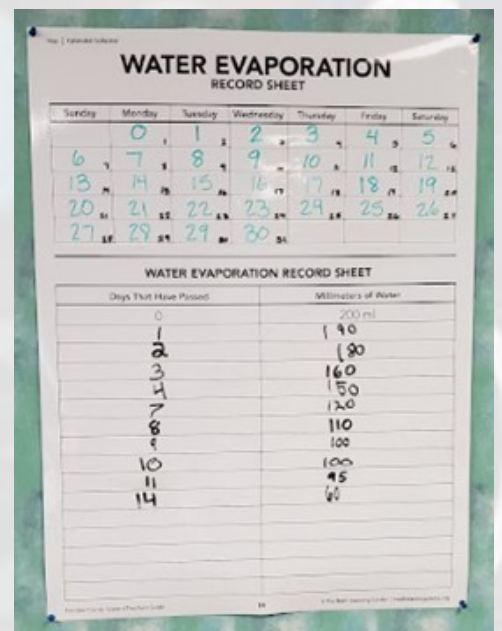 WATER EVAPORATION
RECORD SHEET
Sunday Monday Tuesday Wednesday Thursday Friday Saturday
0 1 1 2 2 3 3 4 4 5 5 6
6 7 7 8 8 9 9 10 11 12 12 13
13 14 14 15 15 16 16 17 17 18 18 19 19 20
20 21 21 22 22 23 23 24 24 25 25 26 26 27
27 28 28 29 29 30 30 31
WATER EVAPORATION RECORD SHEET
Days That Have Passed Millimeters of Water
0 200 ml
1 190
2 180
3 160
4 150
7 120
8 110
9 100
10 100
11 95
14 60